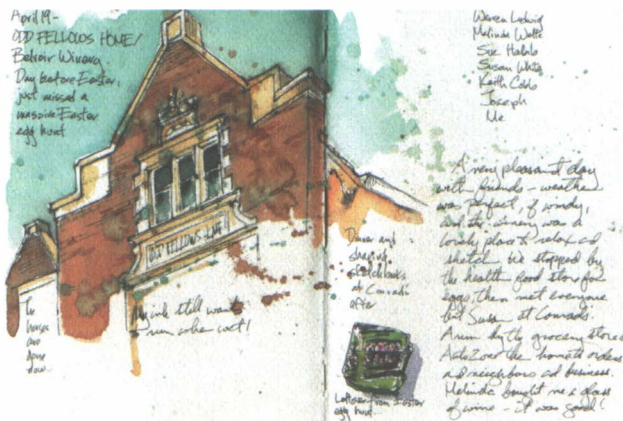 April 19-
ODD FELLOWS HOME/
Belvoir Winery
Day before Easter,
just missed a
massive Easter
egg hunt
ODD FELLOWS
The
horses
are
gone
now
My ink still wants
to run when wet!
Dinner and
sharing
sketchbooks
at Conrads
after
Leftover from Easter
egg hunt
Susan
Keith Cobb
Joseph
Me
A very pleasant day
with friends - weather
was perfect, if windy,
and the winery was a
lovely place to relax and
sketch. We stopped by
the health food store for
eggs, then met everyone
but Susan at Conrads.
A run by the grocery store,
over the
and neighbors and business.
Melinda bought me a glass
of wine - it was good!